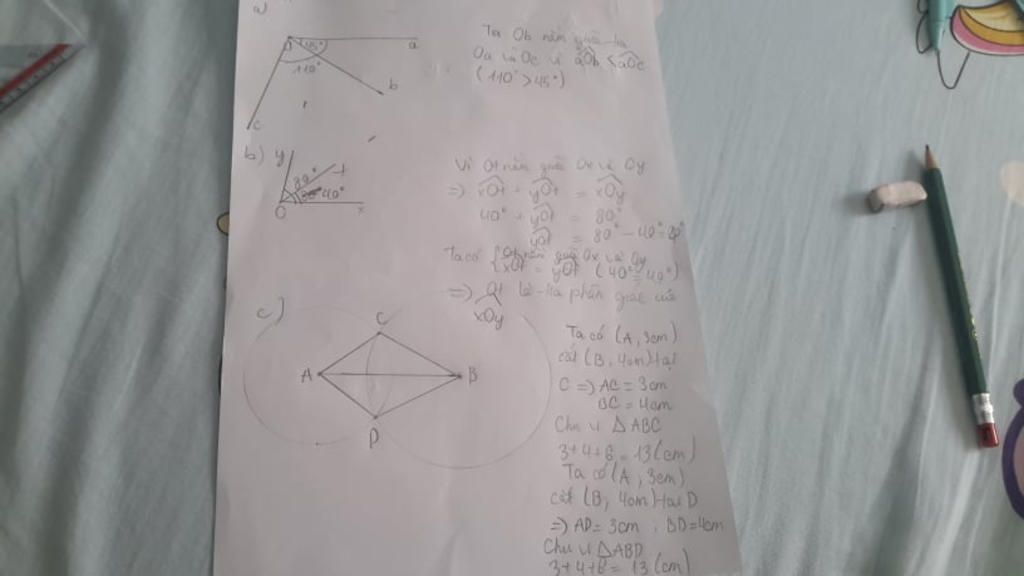 a)
45°
a
110°
b
c
Tia Ob nằm giữa tia
Oa và Oc vì aOb < aOc
(110° > 45°)
b) y
t
80°
40°
O
x
Vì Ot nằm giữa Ox và Oy
=> xOt + yOt = xOy
40° + yOt = 80°
yOt = 80° - 40°
Ta có { Ot nằm giữa Ox và Oy
xOt = yOt (40° = 40°)
=> Ot là tia phân giác của
xOy
c)
C
A
B
D
Ta có (A, 3cm)
cắt (B, 4cm) tại
C => AC = 3cm
BC = 4cm
Chu vi △ABC
3+4+6 = 13 (cm)
Ta có (A, 3cm)
cắt (B, 4cm) tại D
=> AD = 3cm , BD = 4cm
Chu vi △ABD
3+4+6 = 13 (cm)